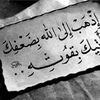 إذهب إلى الله بضعفك
يأتيك بقوته ...